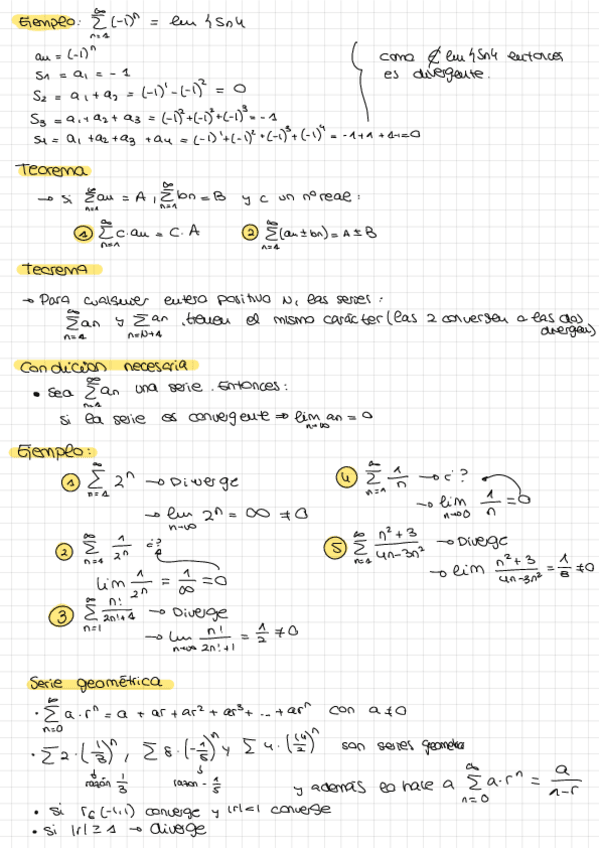 Ejemplo: ∞∑n=1 (-1)^n = lim {Sn}
an = (-1)^n
S1 = a1 = -1
S2 = a1 + a2 = (-1)^1 - (-1)^2 = 0
S3 = a1 + a2 + a3 = (-1)^2 + (-1)^2 + (-1)^3 = -1
S4 = a1 + a2 + a3 + a4 = (-1)^1 + (-1)^2 + (-1)^3 + (-1)^4 = -1+1+-1=0
como ∄ lim {Sn} entonces
es divergente.
Teorema
→ si ∞∑n=1 an = A, ∞∑n=1 bn = B y c un nº real:
① ∞∑n=1 c·an = C·A ② ∞∑n=1 (an ± bn) = A ± B
Teorema
→ Para cualquier entero positivo N, las series:
∞∑n=1 an y ∞∑n=N+1 an, tienen el mismo carácter (las 2 convergen o las dos
divergen)
Condición necesaria
• Sea ∞∑n=1 an una serie. Entonces:
si la serie es convergente ⇒ lim n→∞ an = 0
Ejemplo:
① ∞∑n=1 2^n → Diverge
→ lim n→∞ 2^n = ∞ ≠ 0
② ∞∑n=1 1/2^n ¿?
lim 1/2^n = 1/∞ = 0
③ ∞∑n=1 n!/2n!+1 → Diverge
→ lim n→∞ n!/2n!+1 = 1/2 ≠ 0
④ ∞∑n=1 1/n → ¿?
→ lim n→∞ 1/n = 0
⑤ ∞∑n=1 n²+3/4n-3n² → Diverge
→ lim n²+3/4n-3n² = ≠ 0
Serie geométrica
· ∞∑n=0 a·r^n = a + ar + ar² + ar³ + ... + ar^n con a ≠ 0
· ∑ 2·(1/3)^n, ∑ 8·(-1/5)^n y ∑ 4·( )^n son series geometria
razón 1/3 razon -1/5
y además lo hace a ∞∑n=0 a·r^n = a/1-r
• si r∈(-1,1) converge y |r|<1 converge
• si |r| ≥ 1 → diverge